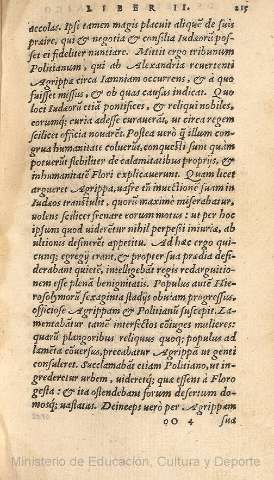 LIBER II. 215
accolas. Ipsi tamen magis placuit aliquē de suis
praire, qui & negotia & consilia Iudæorū pos-
set ei fideliter nuntiare. Mittit ergo tribunum
Politianum, qui ab Alexandria reuertenti
Agrippæ circa Iamniam occurrens, & à quo
fuisset missus, & ob quas causas aperuit. Quo
loci Iudæorū etiā pontifices, & reliqui nobiles,
eorumq; curia adesse curauerāt, ut circa regem
scilicet officia nouarēt. Postea uerò q̄ illum con-
grua humanitate coluerūt, conquesti sunt quàm
potuerūt flebiliter de calamitatibus proprijs, &
inhumanitatē Flori explicauerunt. Quam licet
argueret Agrippa, uafre tñ inuectionē suam in
Iudæos transtulit, quorū maximè miserabatur,
uolens scilicet frenare eorum motus: ut per hoc
ipsum quod uiderētur nihil perpessi iniuriæ, ab
ultionis desinerēt appetitu. Ad hæc ergo qui-
cunq; egregij erant, & propter sua prædia desi-
derabant quietē, intelligebāt regis redargutio-
nem esse plenā benignitatis. Populus autē Hie-
rosolymorū sexaginta stadijs obuiam progressus,
officiose Agrippam & Politianū suscepit. La-
mentabātur tamē interfectos cōiuges mulieres:
quarū plangoribus reliquus quoq; populus ad
lamēta cōuersus, precabatur Agrippā ut genti
consuleret. Succlamabāt etiam Politiano, ut in-
grederetur urbem, uideretq́; quæ essent à Floro
gesta: & ita ostendebant forum desertum do-
mosq́; uastatas. Deinceps uerò per Agrippam
oO 4 sua
Ministerio de Educación, Cultura y Deporte